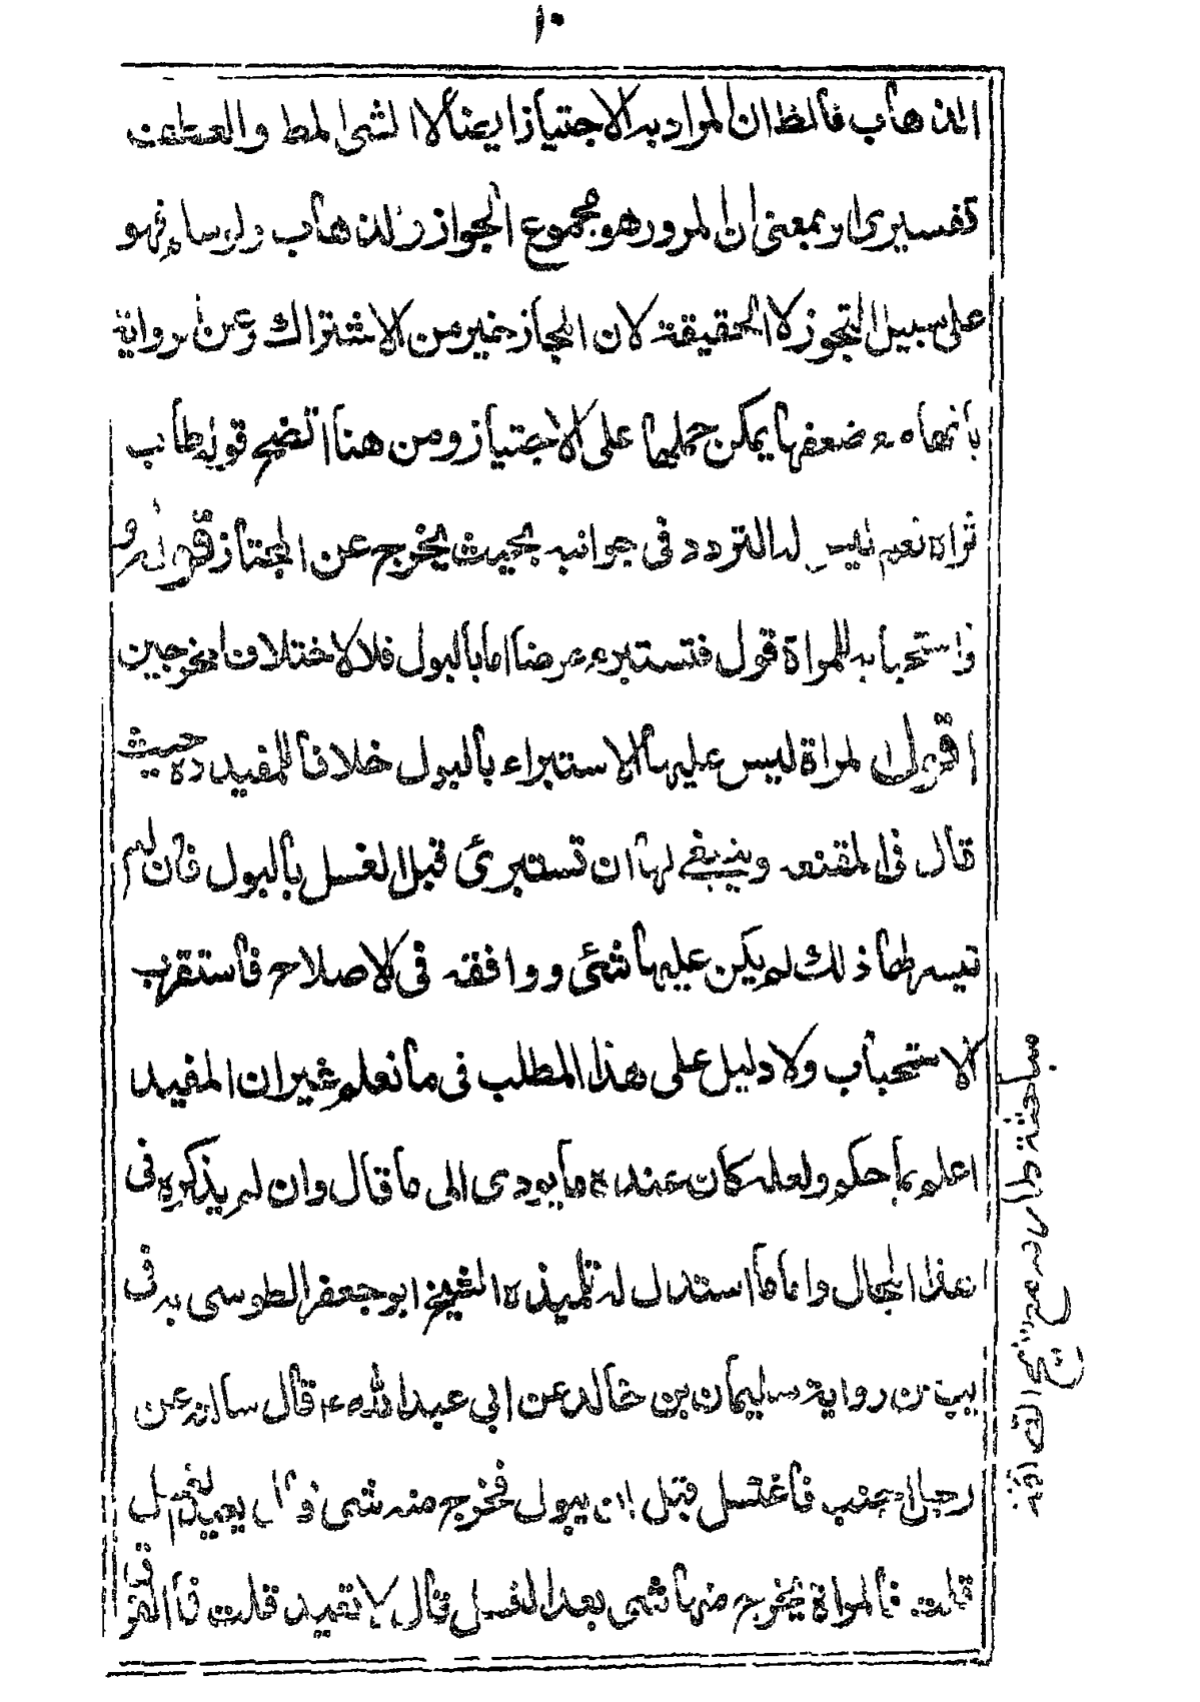 ١٠
الذهاب فالظ ان المراد به الاجتياز ايضا لا الشى المط والعطف
تفسيرى او بمعنى ان المرور هو مجموع الجواز والذهاب ولو سلم فهو
على سبيل التجوز لا الحقيقة لان المجاز خير من الاشتراك وعن الرواية
بانها مع ضعفها يمكن حملها على الاجتياز ومن هنا اتضح قوله طاب
ثراه نعم ليس له التردد فى جوانبه بحيث يخرج عن المجتاز قوله ره
واستحبابه للمراة قول فتستبرء عرضا اما بالبول فلا لاختلاف المخرجين
اقول المراة ليس عليها الاستبراء بالبول خلافا للمفيد ره حيث
قال فى المقنعه وينبغى لها ان تستبرئ قبل الغسل بالبول فان لم
تيسر لها ذلك لم يكن عليها شئى ووافقه فى الاصلاح فاستقرب
الاستحباب ولا دليل على هذا المطلب فى ما نعلم غير ان المفيد
اعلم بما حكم ولعله كان عنده ما يودى الى ما قال وان لم يذكره فى
هذا المجال واما ما استدل له تلميذه الشيخ ابو جعفر الطوسى به فى
يب من رواية سليمان بن خالد عن ابي عبد الله ع قال سالته عن
رجل اجنب فاغتسل قبل ان يبول فخرج منه شى قال يعيد الغسل
قلت فالمراة يخرج منها شى بعد الغسل قال لا تعيد قلت فما الفرق